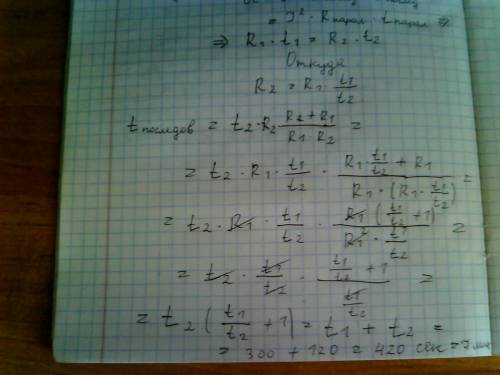 = J² · R парал · t парал ⇒
⇒ R₁ · t₁ = R₂ · t₂
Откуда
R₂ = R₁ · t₁/t₂
t последов = t₂ · R₂ · (R₂ + R₁)/(R₁ · R₂) =
= t₂ · R₁ · t₁/t₂ · (R₁ · t₁/t₂ + R₁)/(R₁ · (R₁ · t₁/t₂)) =
= t₂ · R₁ · t₁/t₂ · (R₁ (t₁/t₂ + 1))/(R₁² · t₁/t₂) =
= t₂ · t₁/t₂ · (t₁/t₂ + 1)/(t₁/t₂) =
= t₂ (t₁/t₂ + 1) = t₁ + t₂ =
= 300 + 120 = 420 сек = 7 мин